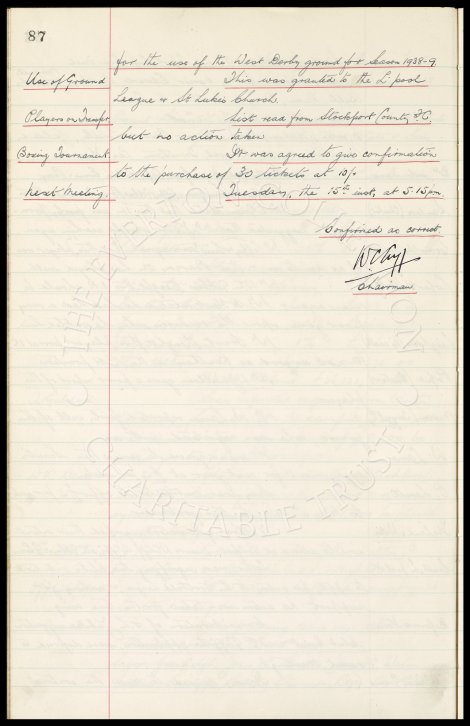 87
for the use of the West Derby ground for Season 1938-9
Use of Ground This was granted to the L'pool
League & St Luke's Church.
Players on Transfer List read from Stockport County F.C.
but no action taken
Boxing Tournament. It was agreed to give confirmation
to the purchase of 30 tickets at 10/-
Next Meeting. Tuesday, the 15th inst, at 5.15pm
Confirmed as correct
Chairman
THE EVERTON COLLECTION
CHARITABLE TRUST